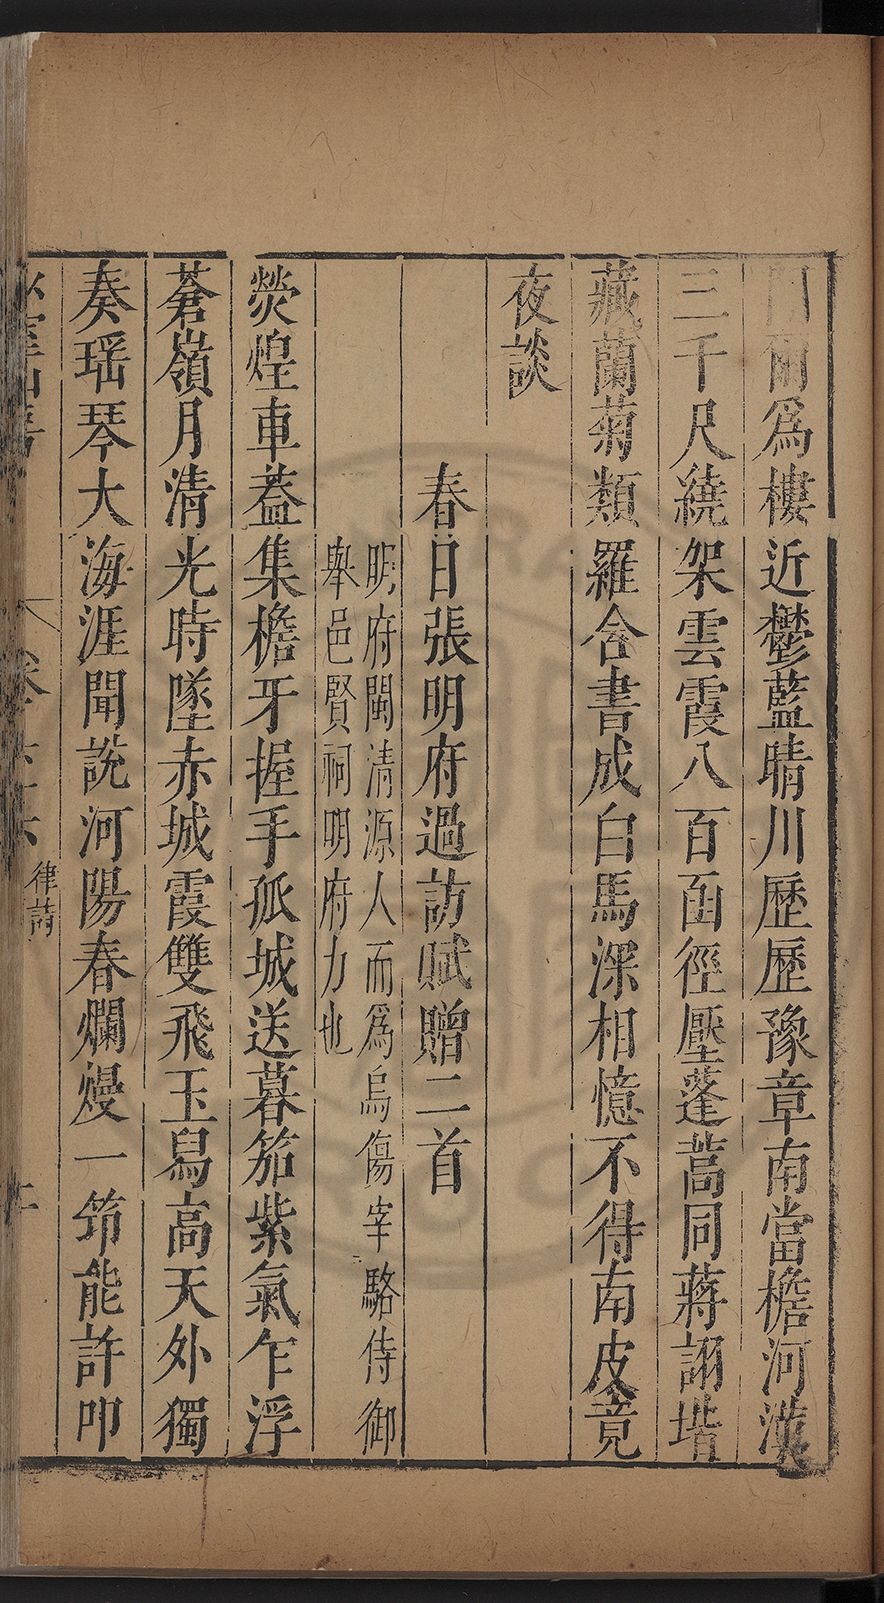 爾爲樓近鬱藍晴川歷歷豫章南當檐河漢
三千尺繞架雲霞八百函徑壓蓬蒿同蔣詡堦
藏蘭菊類羅含書成白馬深相憶不得南皮竟
夜談
春日張明府過訪賦贈二首
明府閩清源人而爲烏傷宰駱侍御
舉邑賢祠明府力也
熒煌車蓋集檐牙握手孤城送暮笳紫氣乍浮
蒼嶺月清光時墜赤城霞雙飛玉舄高天外獨
奏瑶琴大海涯聞說河陽春爛熳一笻能許叩
律詩